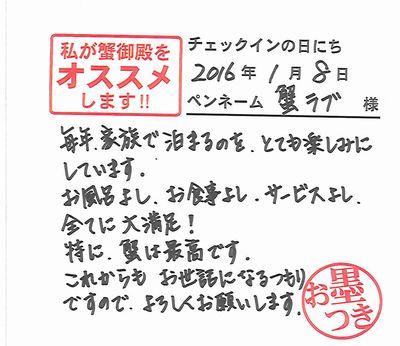 私が蟹御殿を
オススメ
します!!
チェックインの日にち
2016年1月8日
ペンネーム 蟹ラブ 様
毎年、家族で泊まるのを、とても楽しみに
しています。
お風呂よし、お食事よし、サービスよし、
全てに大満足!
特に、蟹は最高です。
これからも お世話になるつもり
ですので、よろしくお願いします。
お墨つき